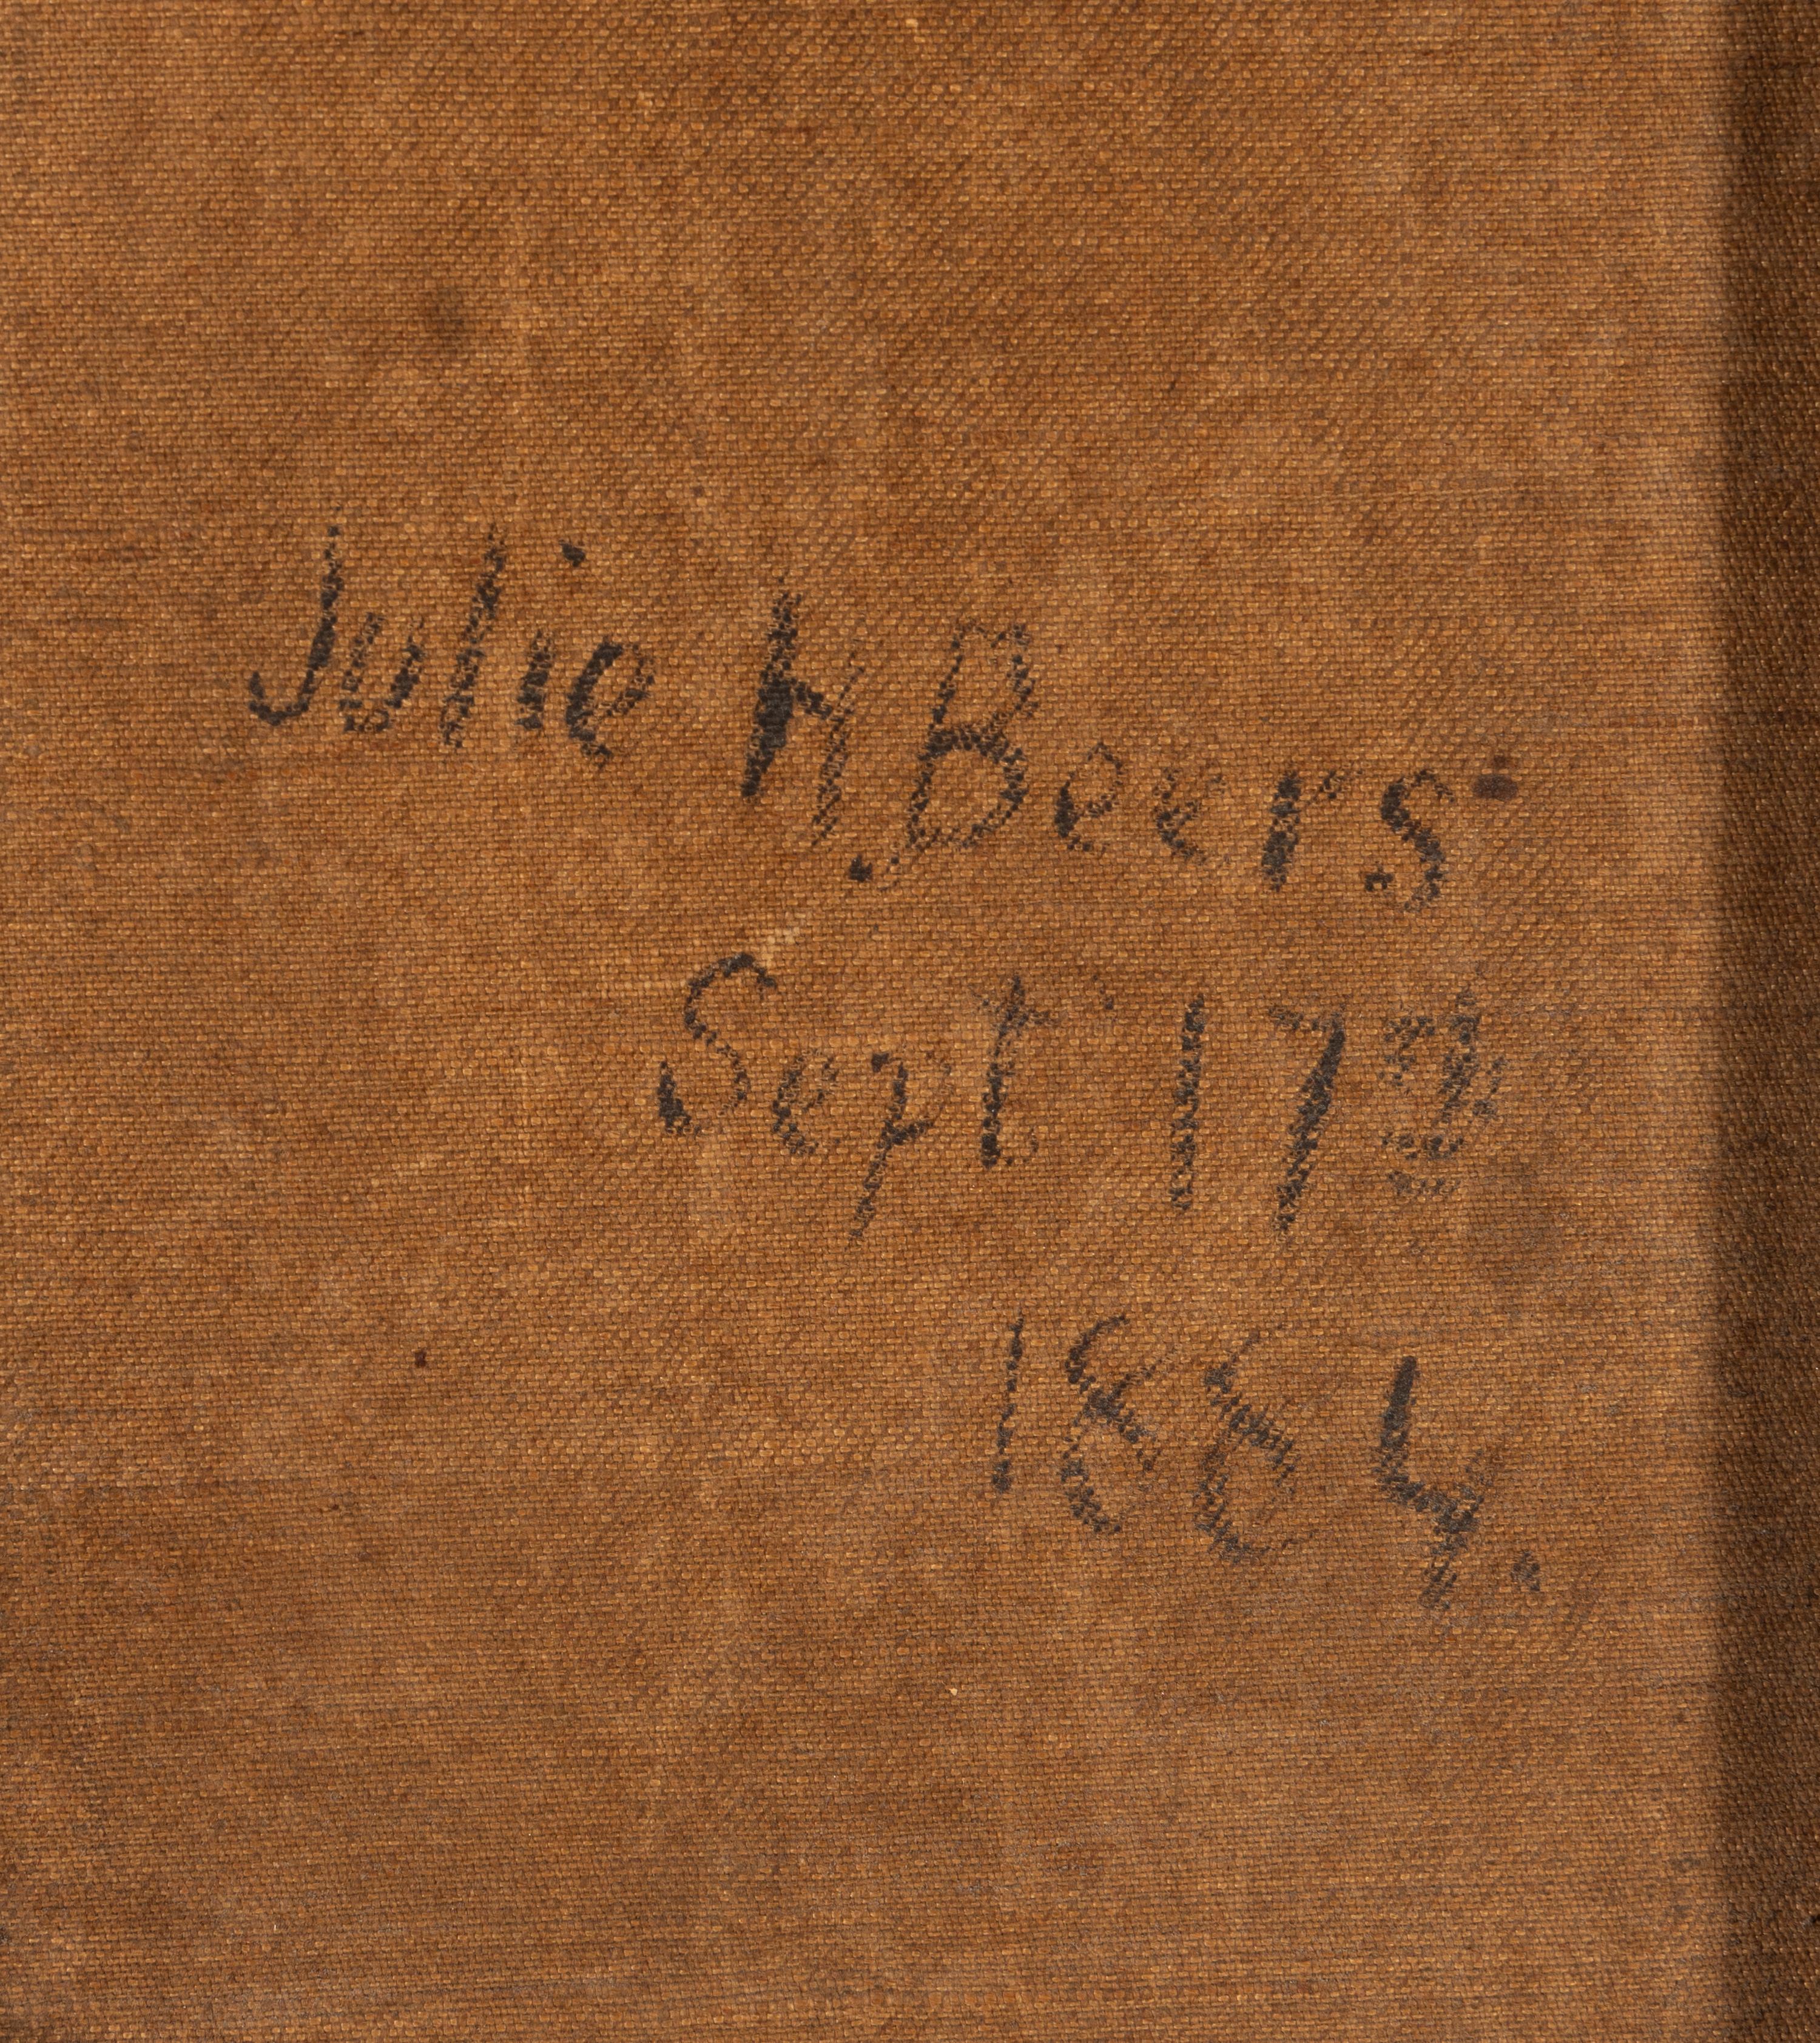 Julie H. Beers
Sept 17th
1884.